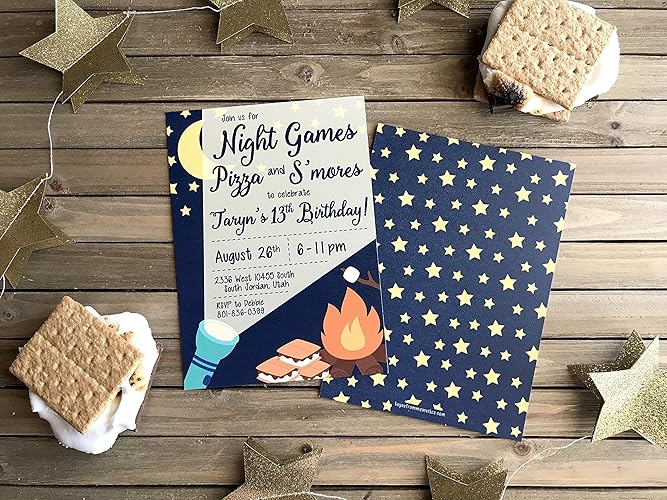 Join us for
Night Games
Pizza and S'mores
to celebrate
Taryn's 13th Birthday!
August 26th | 6-11 pm
2336 West 10455 South
South Jordan, Utah
RSVP to Debbie
801-836-0399